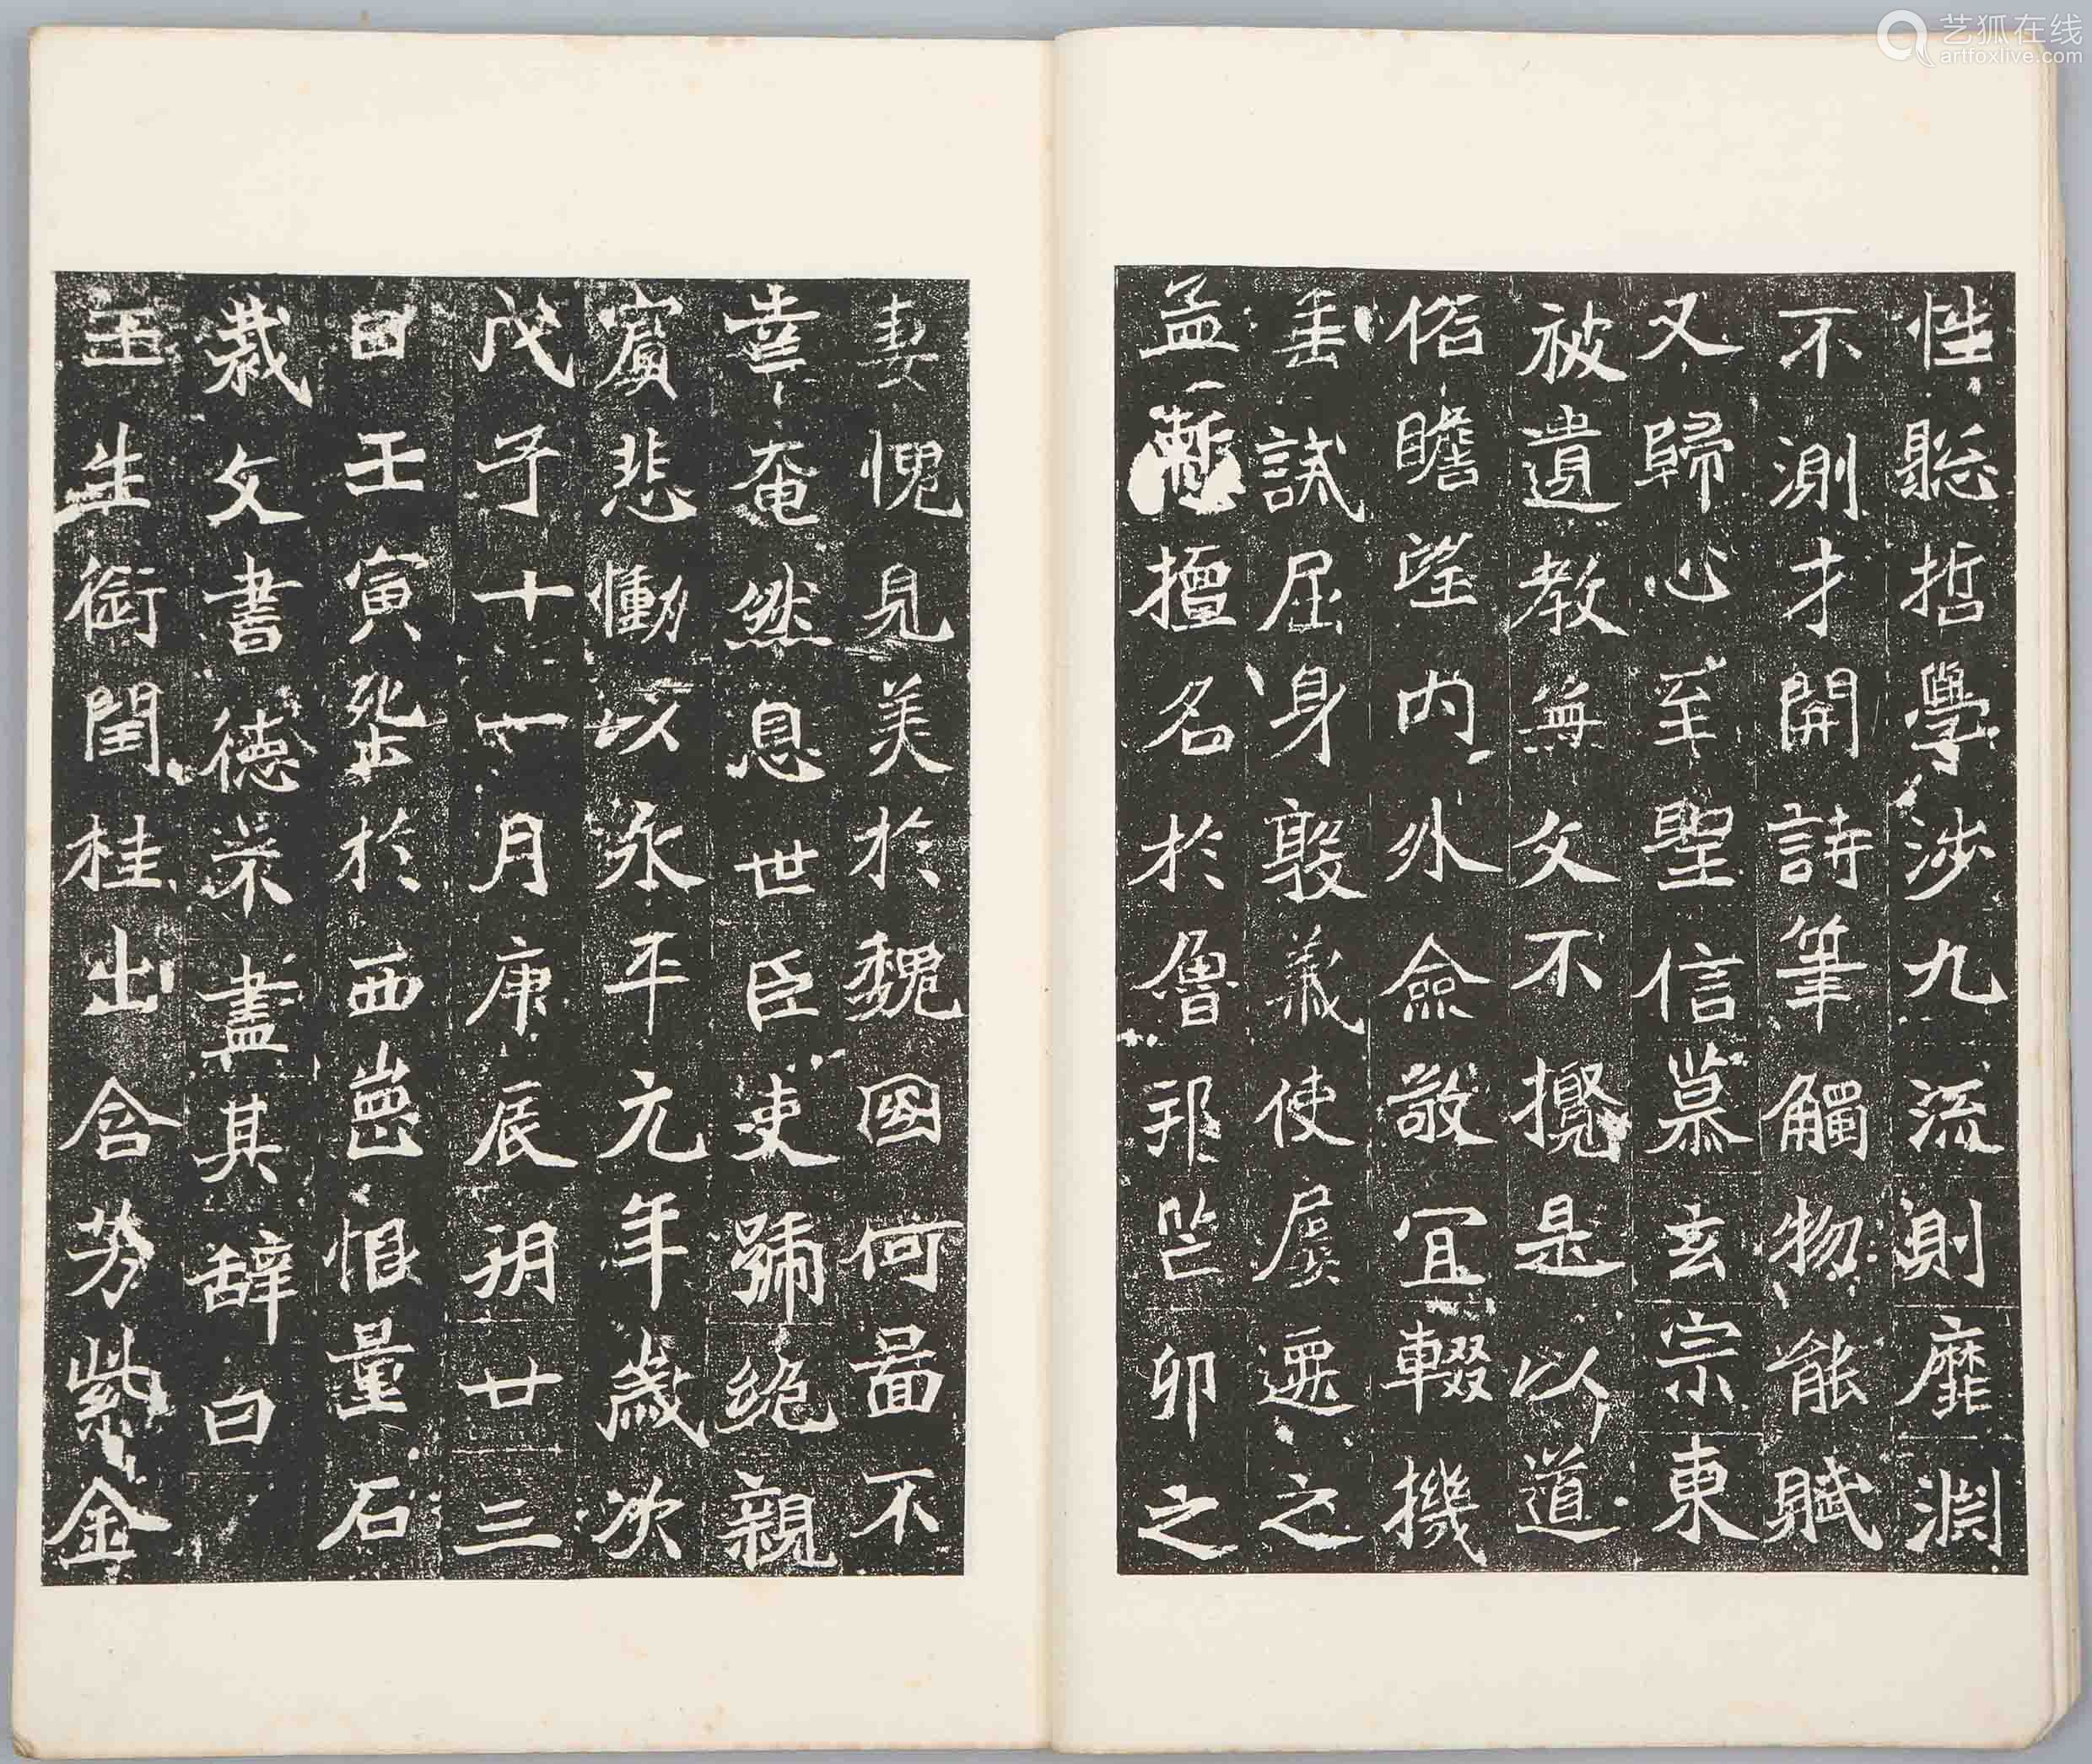 性聡哲學涉九流則靡淵
不測才開詩筆觸物能賦
又歸心至聖信慕玄宗東
被遺教無文不攬是以道
俗瞻望內外僉敬宜輟機
衡試屈身敦義使展遷之
孟暫擅名於魯邦芒卯之
妻愧見美於魏國何啚不
幸奄然息世臣吏號絶親
賓悲慟以永平元年歲次
戊子十一月庚辰朔廿三
日壬寅葬於西崗恨量石
裁文書德策盡其辞曰
玉生衛閏桂出含芳紫金
艺狐在线
artfoxlive.com